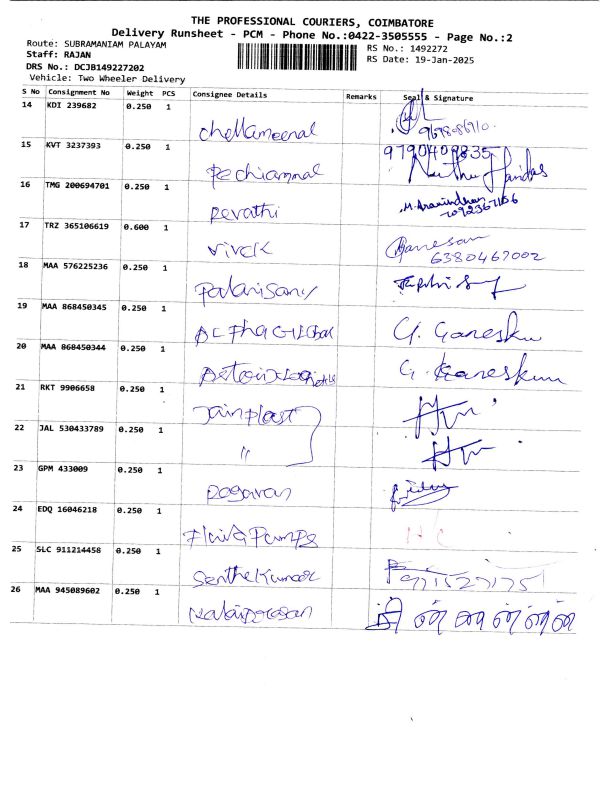 THE PROFESSIONAL COURIERS, COIMBATORE
Delivery Runsheet - PCM - Phone No.:0422-3505555 - Page No.:2
Route: SUBRAMANIAM PALAYAM RS No.: 1492272
Staff: RAJAN RS Date: 19-Jan-2025
DRS No.: DCJB149227202
Vehicle: Two Wheeler Delivery
S No Consignment No Weight PCS Consignee Details Remarks Seal & Signature
14 KDI 239682 0.250 1 chellameenal
15 KVT 3237393 0.250 1 Pechiammal 9790409835
16 TMG 200694701 0.250 1 Revathi M. Aravindhan
17 TRZ 365106619 0.600 1 vivek Ganesan 6380467002
18 MAA 576225236 0.250 1 Palanisamy
19 MAA 868450345 0.250 1 G. Ganesku
20 MAA 868450344 0.250 1 G. Ganeskum
21 RKT 9906658 0.250 1 Jainplast
22 JAL 530433789 0.250 1 "
23 GPM 433009 0.250 1
24 EDQ 16046218 0.250 1 Pumps
25 SLC 911214458 0.250 1 Senthil Kumar
26 MAA 945089602 0.250 1